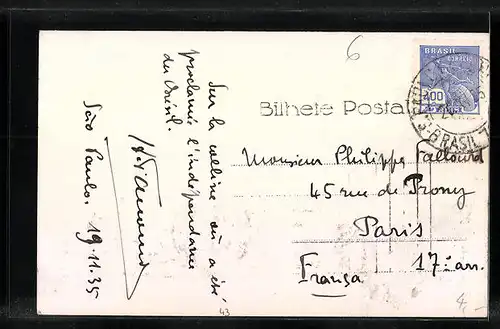 6
BRASIL
CORREIO
200
BRASIL
Bilhete Postal
Sur la colline où a été
proclamé l'indépendance
du Brésil.
São Paulo. 19.11.35
Monsieur Philippe
45 rue de Prony
Paris
França 17 arr.
43
4